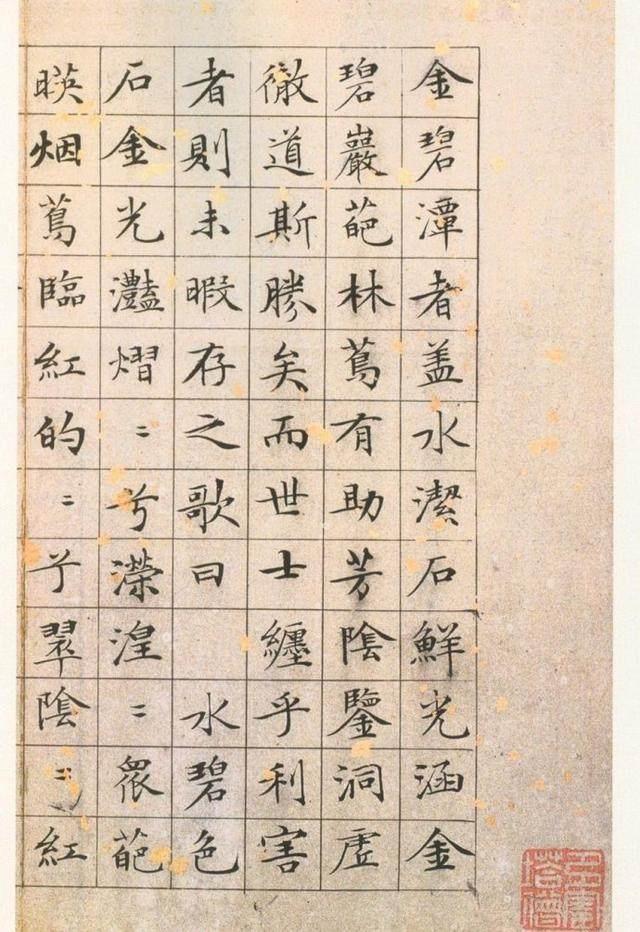 金碧潭者盖水潔石鮮光涵金
碧巖葩林蔦有助芳陰鑒洞虛
徹道斯勝矣而世士纏乎利害
者則未暇存之歌曰 水碧色
石金光灩熠〻兮濴湟〻眾葩
暎烟蔦臨紅的〻兮翠陰〻紅